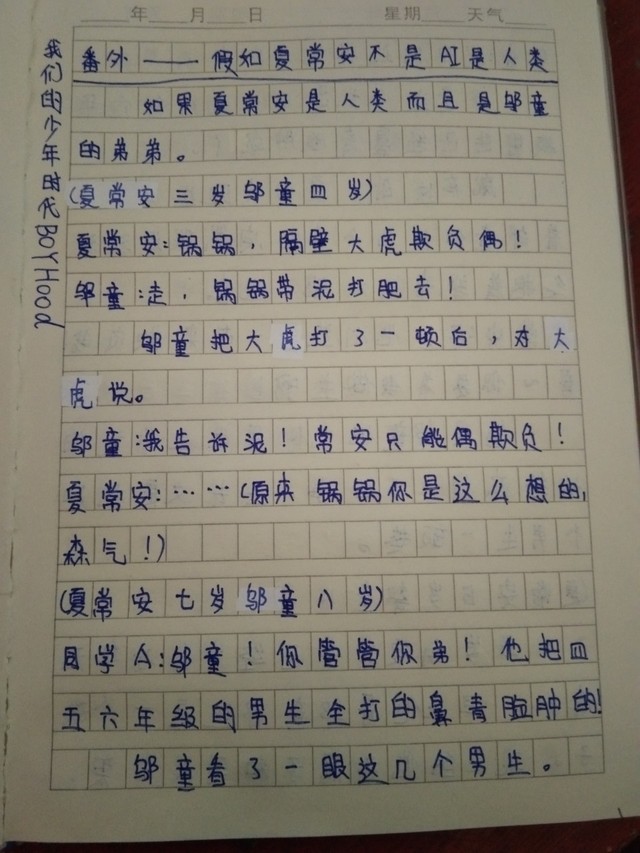 年 月 日 星期 天气
我们的少年时代BOYHood
番外——假如夏常安不是AI是人类
如果夏常安是人类而且是邬童
的弟弟。
(夏常安三岁邬童四岁)
夏常安:锅锅,隔壁大虎欺负偶!
邬童:走,锅锅带泥打肥去!
邬童把大虎打了一顿后,对大
虎说。
邬童:我告诉泥!常安只能偶欺负!
夏常安:……(原来锅锅你是这么想的,
森气!)
(夏常安七岁邬童八岁)
同学A:邬童!你管管你弟!他把四
五六年级的男生全打的鼻青脸肿的!
邬童看了一眼这几个男生。